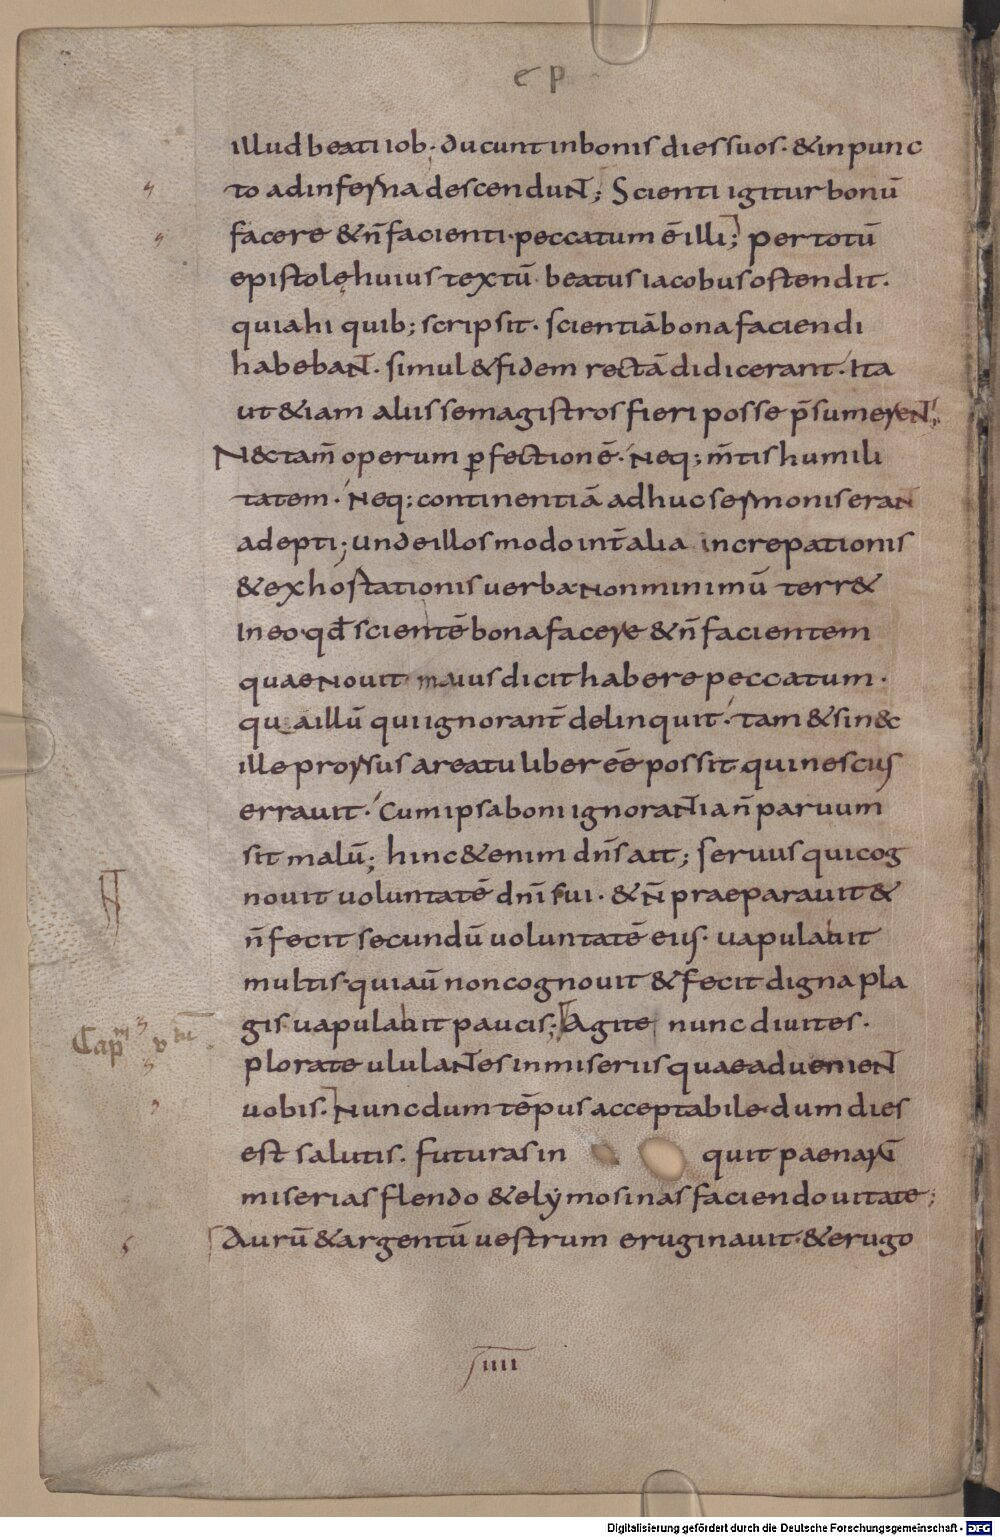 e p
illud beati iob. ducunt in bonis dies suos. & in punc
to ad inferna descenduNT; Scienti igitur bonū
facere & n̄ facienti. peccatum ē illi; per totū
epistolę huius textū. beatus iacobus ostendit.
quia hi quib; scripsit. scientiā bona faciendi
habebaNT. simul & fidem rectā didicerant. Ita
ut &iam aliis se magistros fieri posse p̄sumereNT;
Nec tam̄ operum ꝑfectionē. Neq; m̄tis humili
tatem. Neq; continentiā adhuc sermonis eraNT
adepti; unde illos modo int̄ alia increpationis
& exhortationis uerba non minimū terr&
In eo qd̄ scientē bona facere & n̄ facientem
quae nouit maius dicit habere peccatum.
qu a illū qui ignorant̄ delinquit. tam & si nec
ille prorsus a reatu liber eē possit qui nescius
errauit. Cum ipsa boni ignoraNTia n̄ paruum
sit malū; hinc &enim dn̄s ait; seruus qui cog
nouit uoluntatē dn̄i sui. & n̄ praeparauit &
n̄ fecit secundū uoluntatē eius. uapulabit
multis. qui aū non cognouit & fecit digna pla
gis uapulabit paucis; Agite nunc diuites.
Capm vtū
plorate ululaNTes in miseriis quae aduenieNT
uobis. Nunc dum tēpus acceptabile. dum dies
est salutis. futuras in quit paenarū
miserias flendo & elymosinas faciendo uitate;
Aurū & argentū uestrum eruginauit. & erugo
IIII
Digitalisierung gefördert durch die Deutsche Forschungsgemeinschaft - DFG